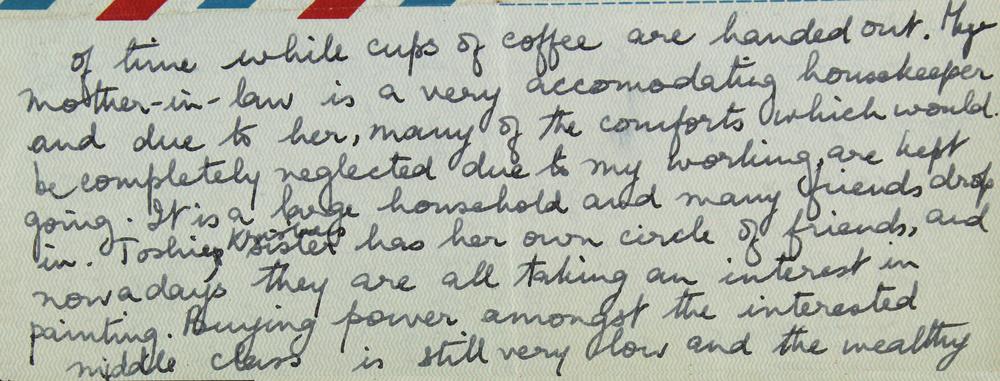 of time while cups of coffee are handed out. My
mother-in-law is a very accomodating housekeeper
and due to her, many of the comforts which would
be completely neglected due to my working, are kept
going. It is a large household and many friends drop
in. Toshi Krishna's sister has her own circle of friends, and
nowadays they are all taking an interest in
painting. Buying power amongst the interested
middle class is still very low and the wealthy